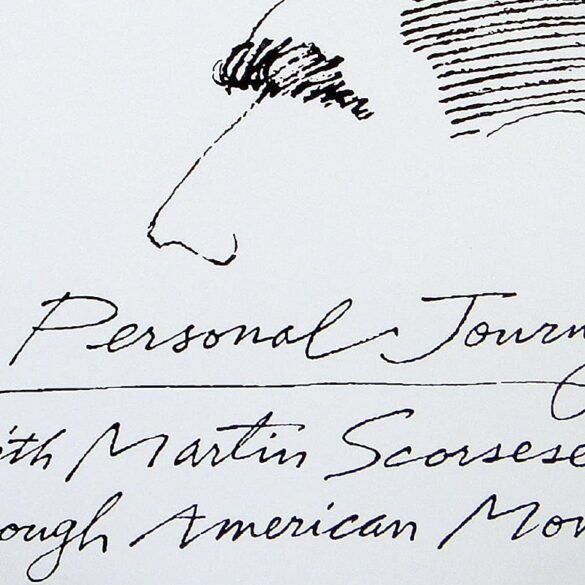 Personal Journ
ith Martin Scorsese
ough American Mo